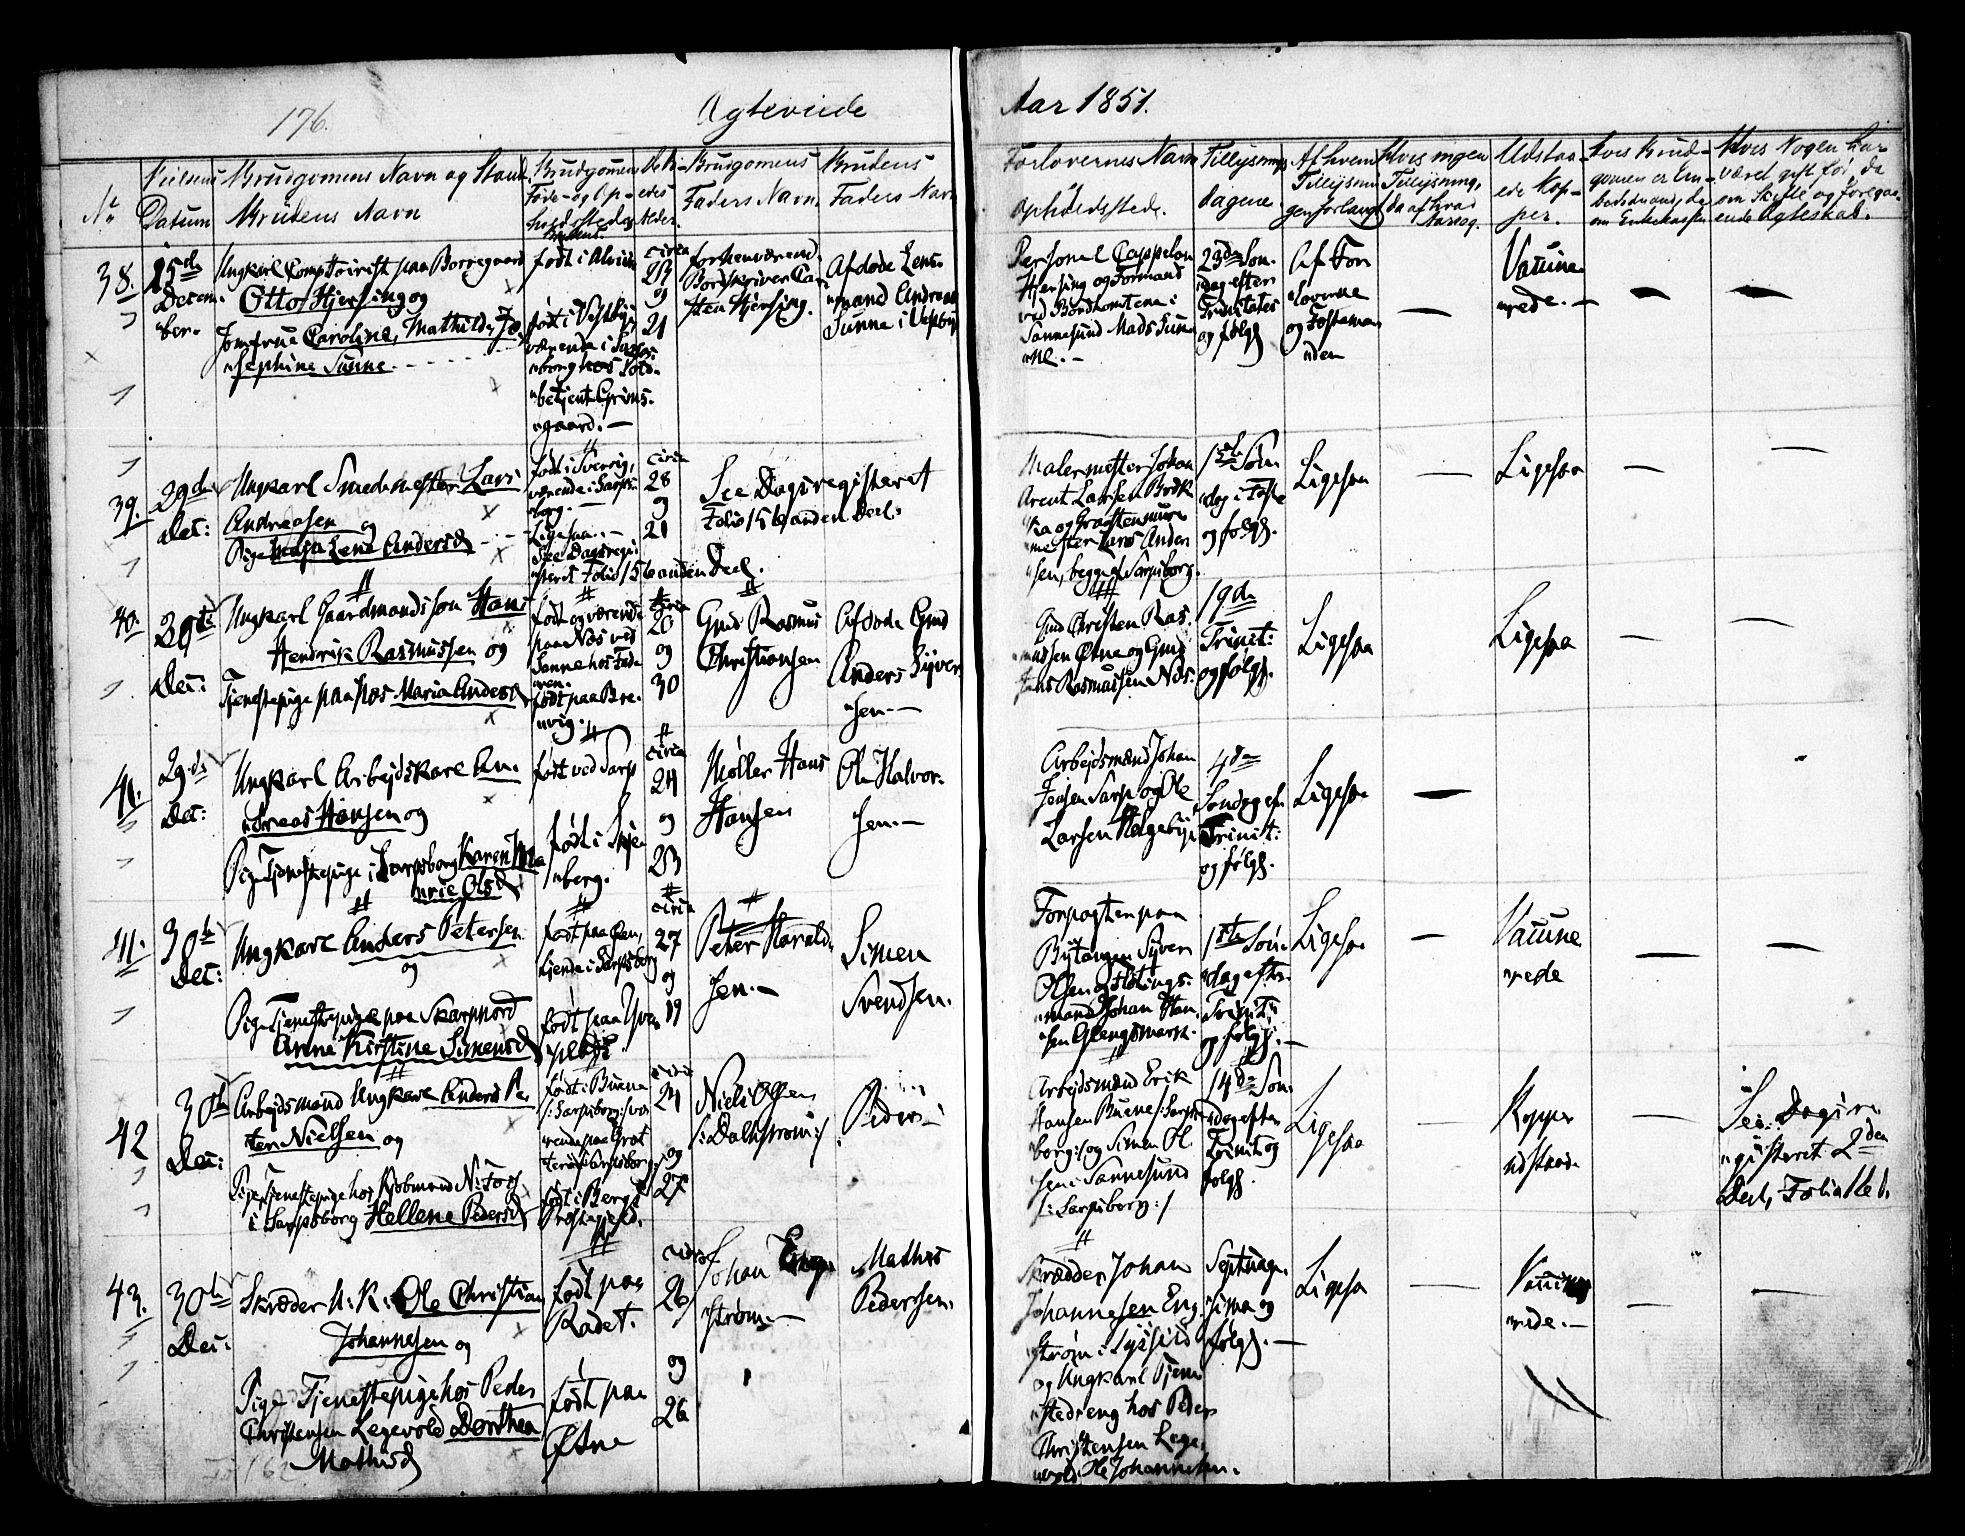 176.
Ægteviede
Aar 1851.
No
Vielsens Datum
Brudgomens Navn og Stand,
Brudens Navn
Brudgomens
Føde- og Op-
holdssted og
Brudens
Deres
Alder.
Brudgomens
Faders Navn
Brudens
Faders Navn
Forlovernes Navn
Opholdssted.
Tillysnings
dagene.
Af hvem
Tillysnin
gen forlangt
Hvis ingen
Tillysning,
da af hvad
Aarsag.
Udstaa-
ede Kop-
per.
Hvis Brud-
gomen er En-
om Enkekassen
Hvis Nogen har
været gift før, da
om Skifte og foregaa-
ende Ægteskab.
38.
15de
Decem-
ber.
Ungkarl Comptoirist paa Borregaard
Otto Hjersing og
Jomfrue Caroline, Mathilde Jo-
sephine Sunne.
født i
født i Vestby,
værende i Sarps-
borg hos Told-
betjent Grims-
gaard.
circa
23
og
21
forhenværende
Bordskriver Car-
sten Hjersing.
Afdøde Lens-
mand Andreas
Sunne i Vestby
Personel Cappelan
Hjersing og Formand
ved Bordtomterne i
Sannesund Mads Sun-
ne.
23de Søn-
dag efter
Trinitatis
og følg.
Af For-
loverne
og Fostema-
den
Vaccine-
rede.
39.
29de
Dec:
Ungkarl Smedemester Lars
Andreasen og
Pige Maja Lena Andersd.
født i Sverrig,
værende i Sarps-
borg.
Ligesaa.
See Dagsregi-
steret Folio 156 anden Deel.
circa
28
og
21
See Dagsregisteret
Folio 156 anden Deel.
Malermester Johan
Arent Larsen
og Graastensmurer-
mester Lars Ander-
sen, begge af Sarpsborg.
1ste Søn-
dag i Faste
og følg.
Ligesaa
Ligesaa
40.
29de
Dec:
Ungkarl Gaardmandssøn Hans
Hendrik Rasmussen og
Tjenestepige paa Næs Maria Andersd.
født og værende
paa Næs ved
Sanne hos Fade-
ren.
født paa Bre-
vig.
circa
20
og
30
Gmd Rasmus
Christiansen
Afdøde Gmd
Anders Syver-
sen.
Gmd Christen Ras-
mussen Østne og Gmd
Jens Rasmussen Næs.
19de
Trinit:
og følg.
Ligesaa
Ligesaa
41.
29de
Dec:
Ungkarl Arbejdskarl An-
dreas Hansen og
Pige Tjenestepige i Sarpsborg Karen Ma-
rie Olsd.
født ved Sarp
født i Skje-
berg.
circa
24
og
23
Møller Hans
Hansen
Ole Halvor-
sen.
Arbejdsmænd Johan
Jensen Sarp og Ole
Larsen Helgeby
4de
Søndag ef.
Trinit:
og følg.
Ligesaa
41.
30te
Dec:
Ungkarl Anders Petersen
og
Pige Tjenestepige paa Skarpnord
Anne Kirstine Simensd.
født paa
tjende i Sarpsborg
født paa
circa
27
og
19
Peter Harald-
sen.
Simen
Svendsen.
Forpagter paa
Bytangen Syver
Olsen og
mand Johan Han-
sen Glengsmark.
1ste Søn-
dag eftr.
Trinit:
og følg.
Ligesaa
Vaccine
rede
42
30te
Dec:
Arbejdsmand Ungkarl Anders Pe-
ter Nielsen og
Pige Tjenestepige hos Kjøbmand N:
i Sarpsborg Hellene Pedersd.
født i Buene
/:Sarpsborg:/ væ-
rende paa
Sarpsborg.
født i Bergs
Præstegjeld.
circa
24
og
27
Niels Olsen
/:Dahlstrøm:/
Peder
Arbejdsmænd Erik
Hansen Buene /:Sarps-
borg:/ og Simen Ol-
sen i Sannesund
/:Sarpsborg:/
14de Søn-
dag efter
Trinit: og
følg.
Ligesaa
Kopper
udstaaede
See Dagsre-
gisteret 2den
Deel, Folio 166.
43.
30te
Dec:
Skræder U: K: Ole Christian
Johannesen og
Pige Tjenestepige hos Peder
Christensen Legevold Dorthea
Mathisd.
født paa
Rødet.
født paa
Østne
circa
26
og
26
Johan Eng-
strøm.
Mathis
Pedersen.
Skrædder Johan
Johannesen Eng-
strøm i
og Ungkarl Tjene-
stedreng hos Peder
Christensen Lege-
vold Ole Johannesen.
Septuage-
sima og
følg.
Ligesaa
Vaccine-
rede.